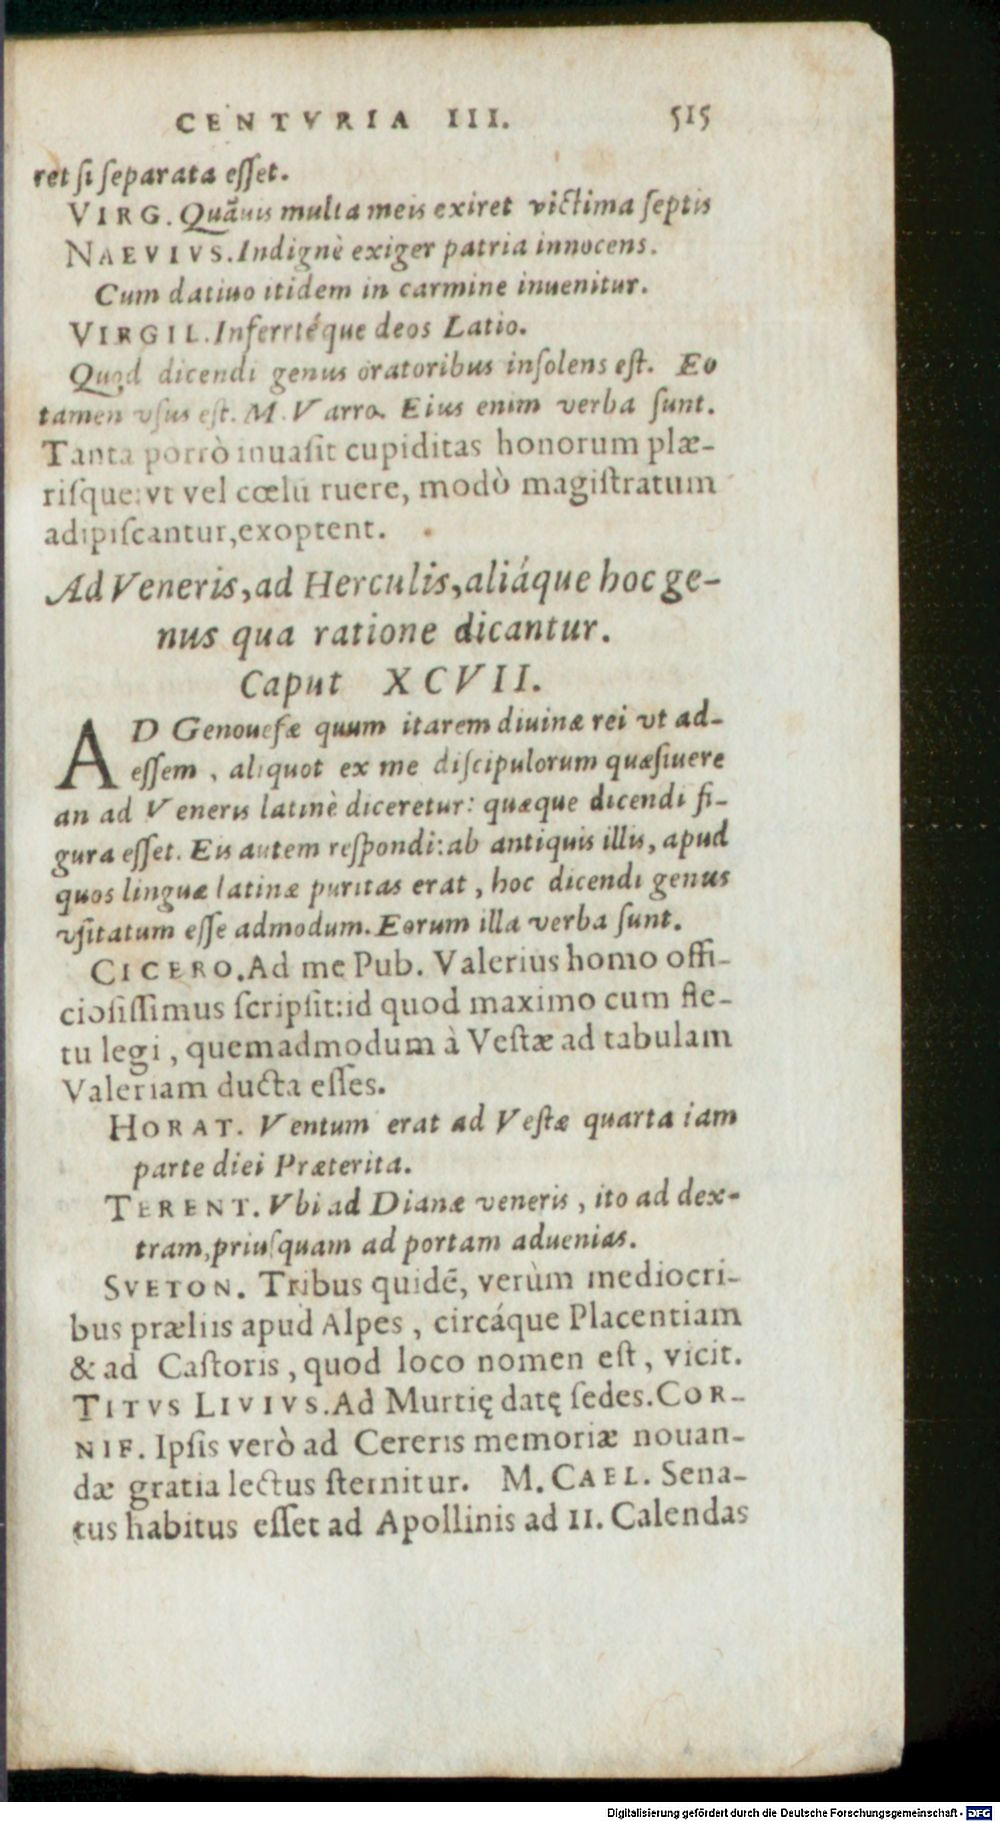 CENTVRIA III. 515
ret si separata esset.
VIRG. Quãuis multa meis exiret victima septis
NAEVIVS. Indignè exiger patria innocens.
Cum datiuo itidem in carmine inuenitur.
VIRGIL. Inferrtéque deos Latio.
Quod dicendi genus oratoribus insolens est. Eo
tamen vsus est. M. Varro. Eius enim verba sunt.
Tanta porrò inuasit cupiditas honorum plæ-
risque: vt vel cœlū ruere, modò magistratum
adipiscantur, exoptent.
Ad Veneris, ad Herculis, aliáque hoc ge-
nus qua ratione dicantur.
Caput XCVII.
AD Genouefæ quum itarem diuinæ rei vt ad-
essem, aliquot ex me discipulorum quæsiuere
an ad Veneris latinè diceretur: quæque dicendi fi-
gura esset. Eis autem respondi: ab antiquis illis, apud
quos linguæ latinæ puritas erat, hoc dicendi genus
vsitatum esse admodum. Eorum illa verba sunt.
CICERO. Ad me Pub. Valerius homo offi-
ciosissimus scripsit: id quod maximo cum fle-
tu legi, quemadmodum à Vestæ ad tabulam
Valeriam ducta esses.
HORAT. Ventum erat ad Vestæ quarta iam
parte diei Præterita.
TERENT. Vbi ad Dianæ veneris, ito ad dex-
tram, priusquam ad portam aduenias.
SVETON. Tribus quidē, verùm mediocri-
bus præliis apud Alpes, circáque Placentiam
& ad Castoris, quod loco nomen est, vicit.
TITVS LIVIVS. Ad Murtię datę sedes. COR-
NIF. Ipsis verò ad Cereris memoriæ nouan-
dæ gratia lectus sternitur. M. CAEL. Sena-
tus habitus esset ad Apollinis ad II. Calendas
Digitalisierung gefördert durch die Deutsche Forschungsgemeinschaft - DFG